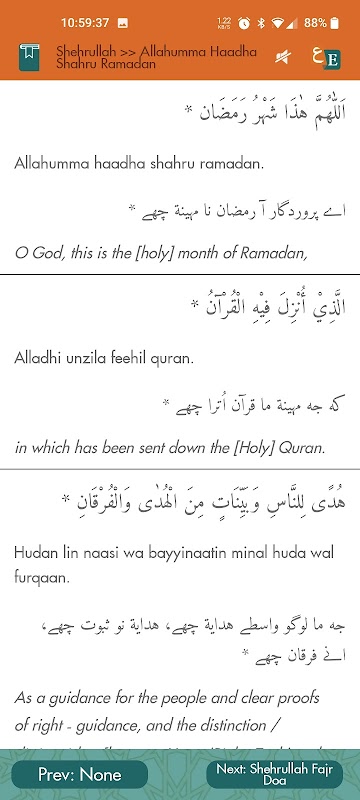 10:59:37
1.22
KB/S
88%
Shehrullah >> Allahumma Haadha
Shahru Ramadan
ع
E
اَللّٰهُمَّ هٰذَا شَهْرُ رَمَضَان *
Allahumma haadha shahru ramadan.
اے پروردگار آ رمضان نا مهينة چھے *
O God, this is the [holy] month of Ramadan,
الَّذِيْ أُنْزِلَ فِيْهِ الْقُرْآنُ *
Alladhi unzila feehil quran.
كه جه مهينة ما قرآن اُترا چھے *
in which has been sent down the [Holy] Quran.
هُدًى لِلنَّاسِ وَبَيِّنَاتٍ مِنَ الْهُدٰى وَالْفُرْقَانِ *
Hudan lin naasi wa bayyinaatin minal huda wal
furqaan.
جه ما لوگو واسطے هداية چھے، هداية نو ثبوت چھے،
انے فرقان چھے *
As a guidance for the people and clear proofs
of right - guidance, and the distinction /
Prev: None
Next: Shehrullah Fajr
Doa